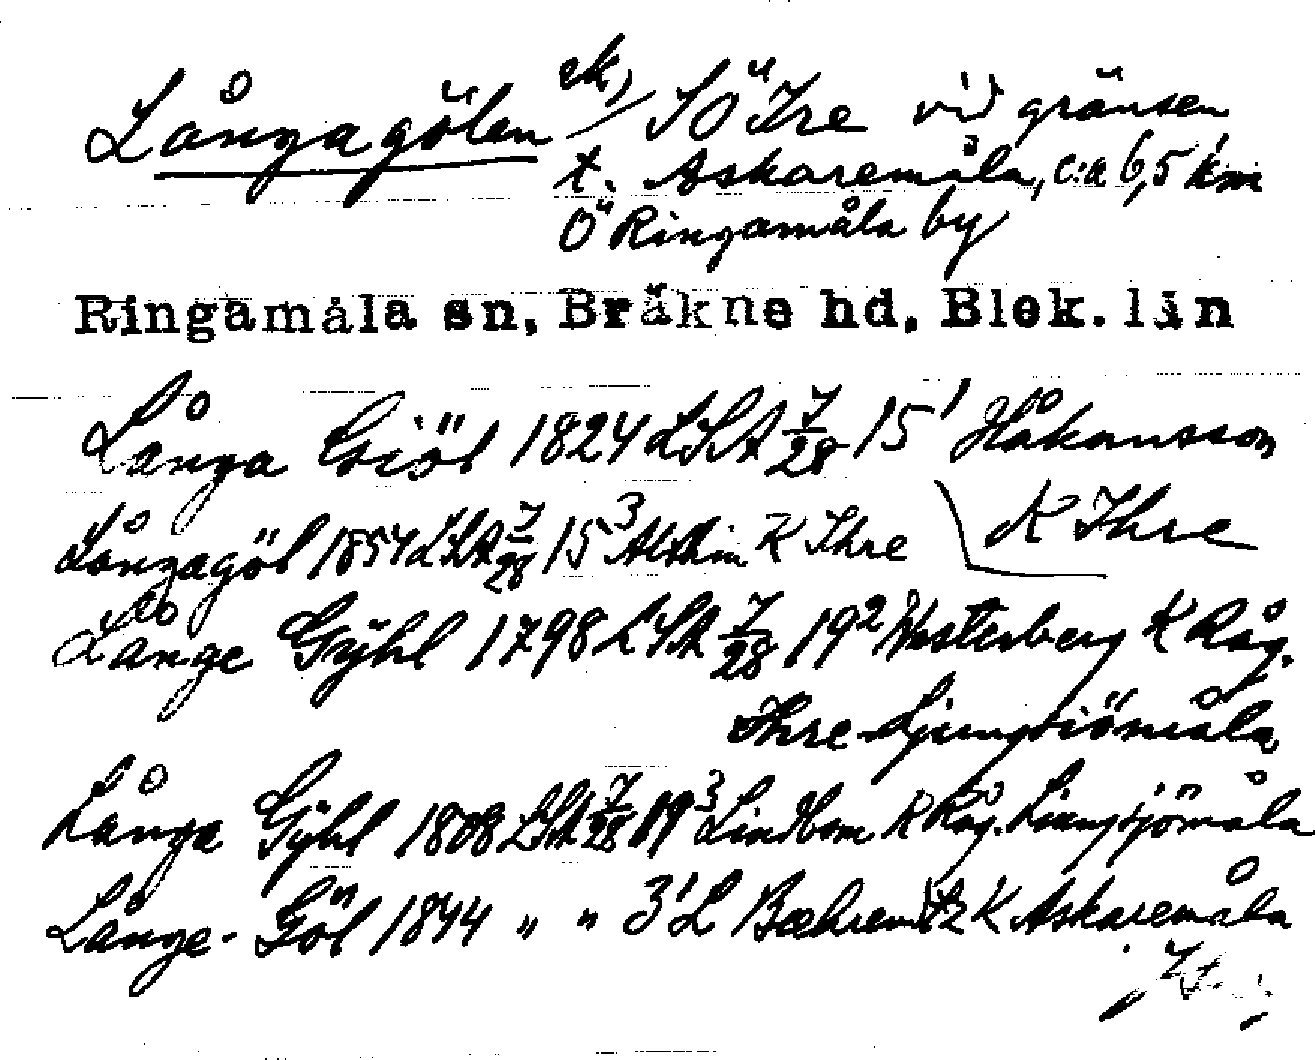 Långagölen ek, / SÖ Ire vid gränsen
t. Askaremåla, c:a 6,5 km
Ö Ringamåla by
Ringamåla sn, Bräkne hd, Blek. län
Långa Giöl 1824 LSA 7/28 15¹ Håkansson
K Ihre
Långagöl 1854 LSA 7/28 15³ Ahlström K Ihre
Långe Gÿhl 1798 LSA 7/28 19² Westerberg K Råg.
Ihre-Ljungsiömåla
Långa Gÿhl 1808 LSA 7/28 19³ Lindbom K Råg. Liungsjömåla
Långe-Göl 1844 " " 3¹ L Bæhrentz K Askaremåla